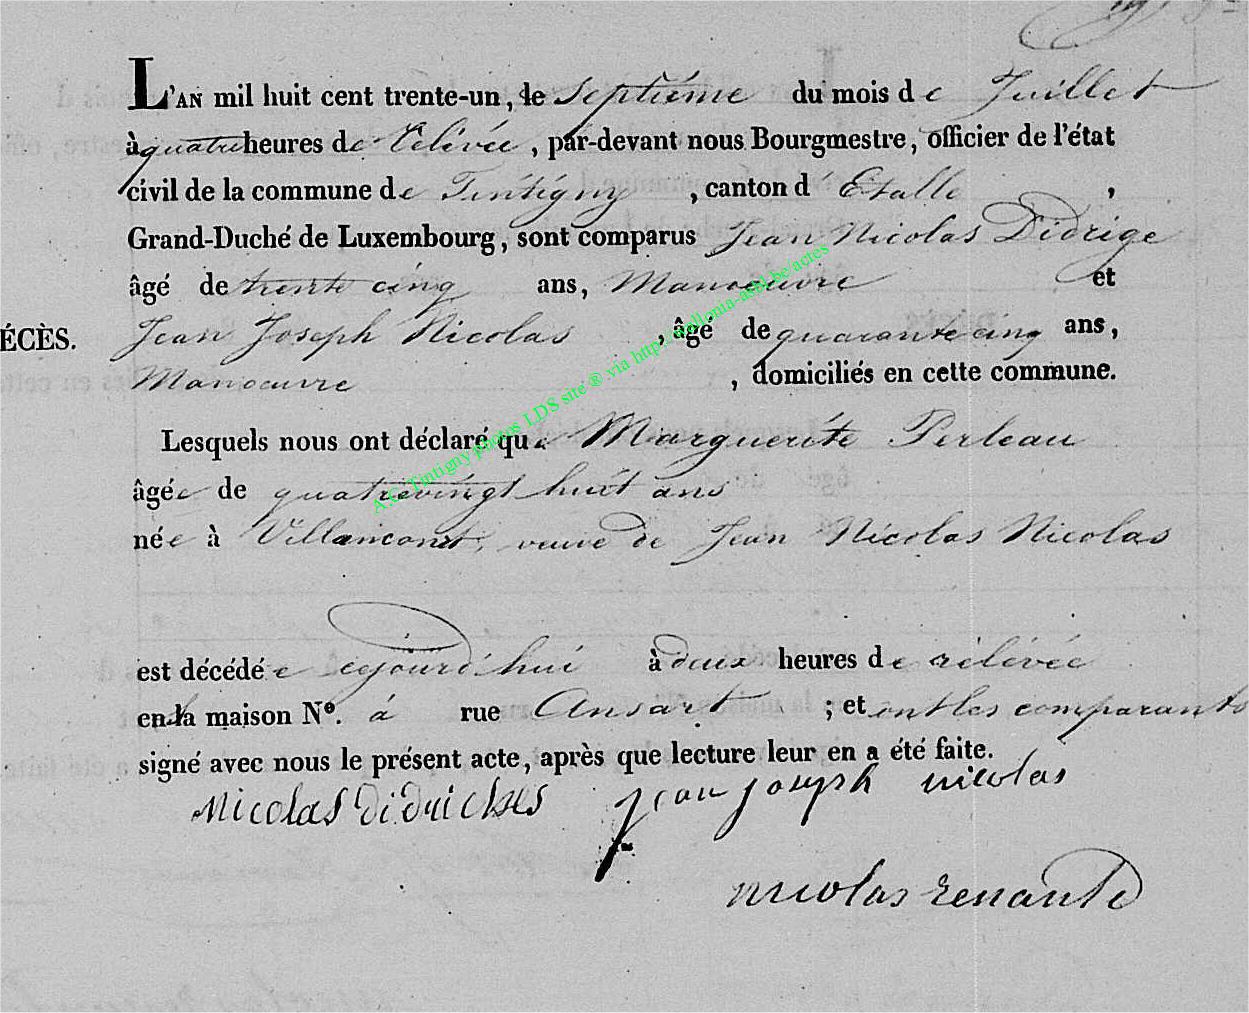 L'AN mil huit cent trente-un, le Septiéme du mois de Juillet
à quatre heures de rélévée, par-devant nous Bourgmestre, officier de l'état
civil de la commune de Tintigny, canton d' Etalle,
Grand-Duché de Luxembourg, sont comparus Jean Nicolas Didrige
âgé de trente cinq ans, Manoeuvre et
ÉCÈS.
Jean Joseph Nicolas, âgé de quarante cinq ans,
Manoeuvre, domiciliés en cette commune.
Lesquels nous ont déclaré que Marguerite Perleau
âgée de quatrevingt huit ans
née à Villancourt, veuve de Jean Nicolas Nicolas
est décédée aujourd'hui à deux heures de rélévée
en la maison N°. á rue Ansart; et ont les comparants
signé avec nous le présent acte, après que lecture leur en a été faite.
Nicolas Didriches jean joseph nicolas
nicolas renauld
A.C. Tintigny photos LDS site ® via http://wallonia-asbl.be/actes